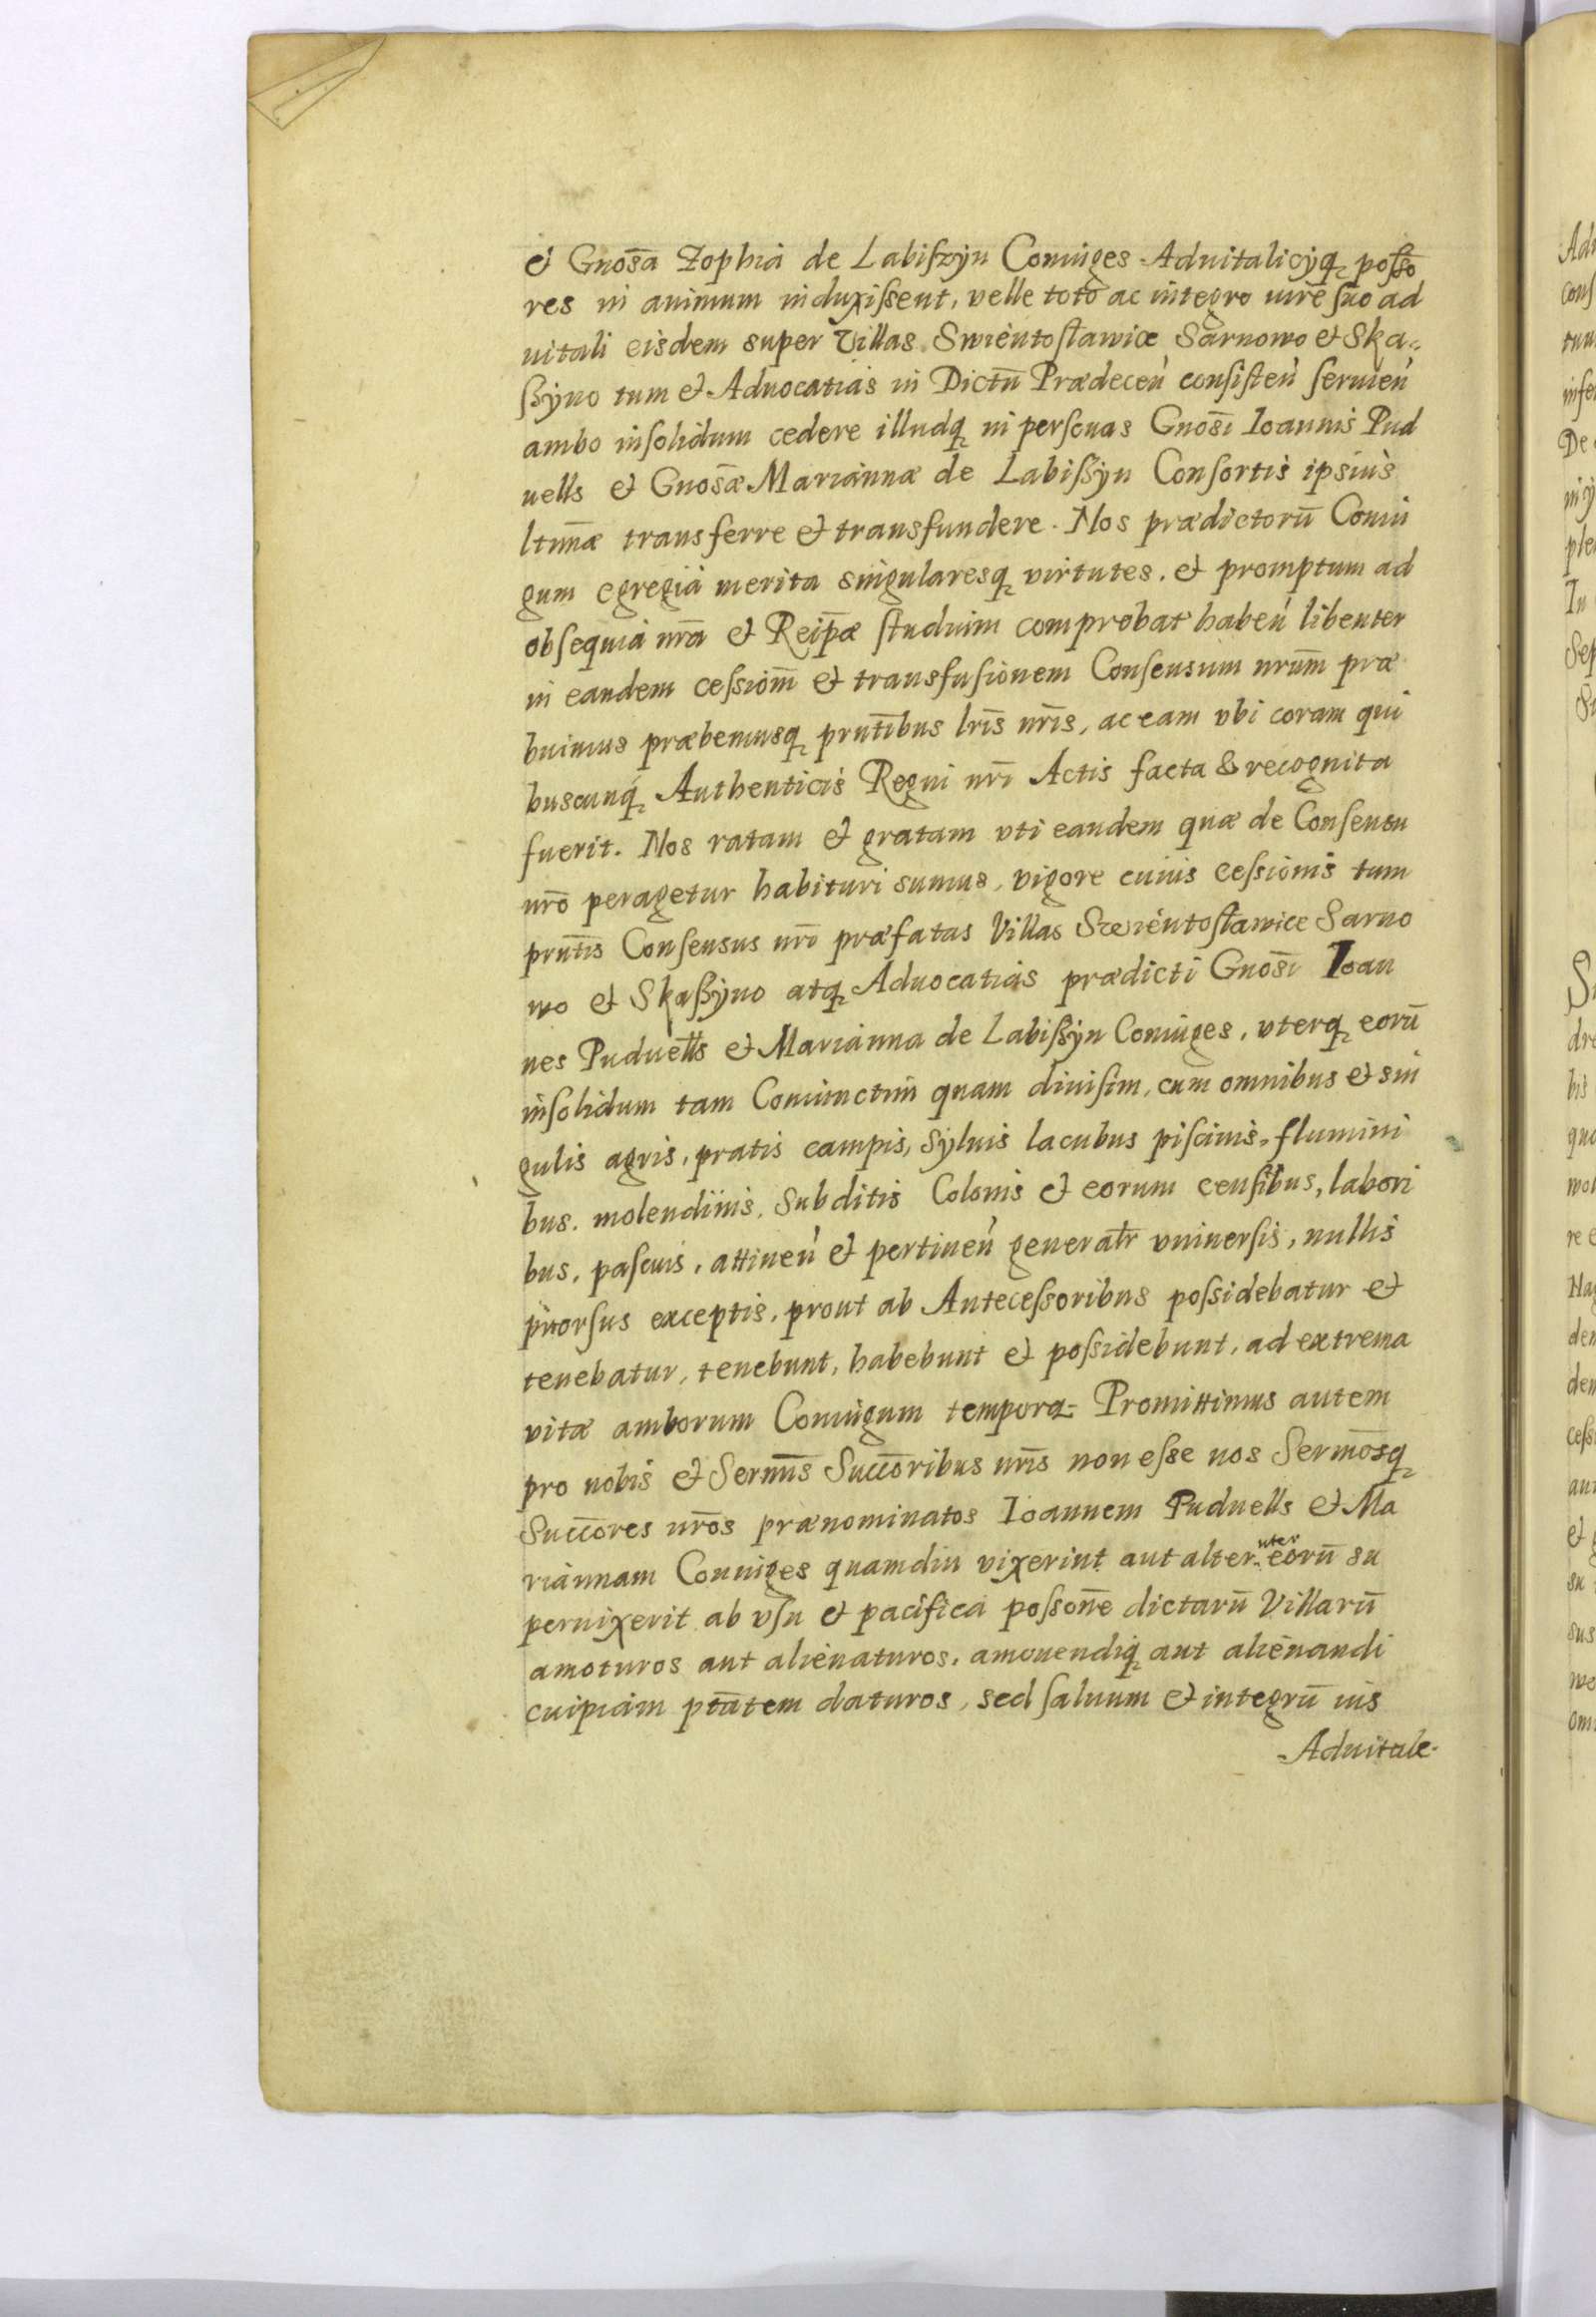 et Gnosā Zophia de Labiszyn Coniuges Aduitalicÿq₂ possō
res in animum induxissent, velle toto ac integro iure suo ad
uitali eisdem super Villas Swiéntosławice Sarnowo et Ska⸗
ßÿno tum et Aduocatias in Dictū Prædeceń consisteń seruień
ambo insolidum cedere illudq₂ in personas Gnosī Ioannis Pud
uells et Gnosæ Mariannæ de Labißÿn Consortis ipsius
ltimæ transferre et transfundere. Nos prædictorū Coniu
gum egregia merita singularesq₂ virtutes, et promptum ad
obsequia nrā et Reipæ studium comprobat habeń libenter
in eandem cessiom̄ et transfusionem Consensum nrum̄ præ
buimus præbemusq₂ prntībus lrīs nrīs, ac eam vbi coram qui
buscunq₂ Authenticis Regni nrī Actis facta & recognita
fuerit. Nos ratam et gratam vti eandem quæ de Consensu
nrō peragetur habituri sumus, vigore cuius cessionis tum
prntīs Consensus nrī præfatas Villas Swiéntosławice Sarno
wo et Skaßÿno atq₂ Aduocatias prædicti Gnosī Ioan
nes Puduells et Marianna de Labißÿn Coniuges, vterq₂ eorū
insolidum tam Coniunctim quam diuisim, cum omnibus et sin
gulis agris, pratis campis, syluis lacubus piscinis, flumini
bus. molendinis, Subditis Colonis et eorum censibus, labori
bus, pascuis, attineń et pertineń generalr̄ vniuersis, nullis
prorsus exceptis, prout ab Antecessoribus possidebatur et
tenebatur, tenebunt, habebunt et possidebunt, ad extrema
vitæ amborum Coniugum tempora⸗ Promittimus autem
pro nobis et Sermīs Succōribus nrīs non esse nos Sermōsq₂
Succōres nrōs prænominatos Ioannem Puduells et Ma
riannam Coniuges quamdiu vixerint aut alteruter eorū su
peruixerit ab vsu et pacifica possonē dictarū Villarū
amoturos aut alienaturos, amouendiq₂ aut alienandi
cuipiam ptātem daturos, sed saluum et integrū ius
Aduitale